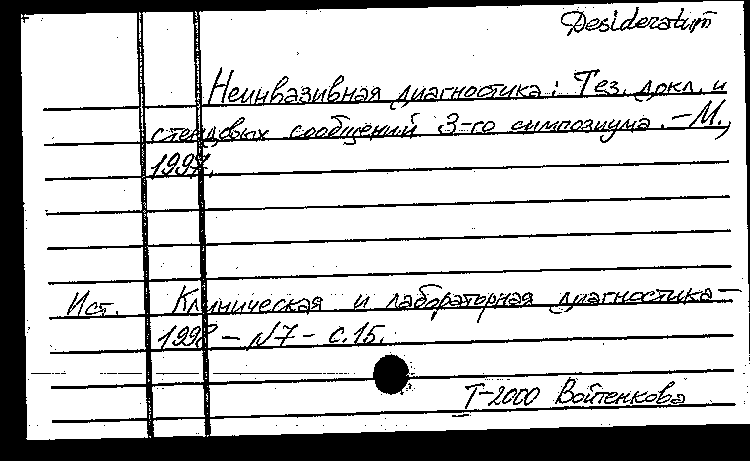 Desideratum
Неинвазивная диагностика: Тез. докл. и
стендовых сообщений 3-го симпозиума. – М.,
1997.
Ист. Клиническая и лабораторная диагностика –
1998 – N7 – с.15.
Т-2000 Войтенкова